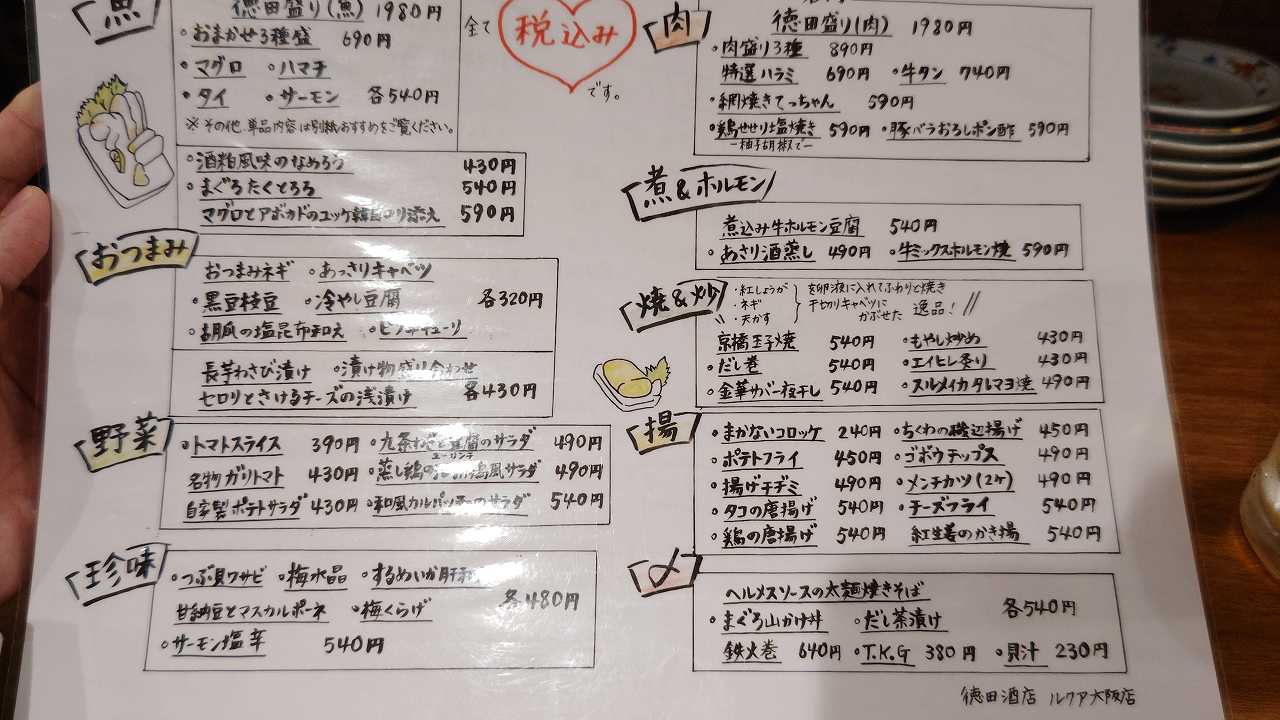 魚
徳田盛り(魚) 1980円
・おまかせ3種盛 690円
・マグロ ・ハマチ
・タイ ・サーモン 各540円
※その他、単品内容は別紙おすすめをご覧ください。
・酒粕風味のなめろう 430円
・まぐろたくとろろ 540円
マグロとアボカドのユッケ韓国のり添え 590円
全て 税込み です。
おつまみ
おつまみネギ ・あっさりキャベツ
・黒豆枝豆 ・冷やし豆腐 各320円
・胡瓜の塩昆布和え ・ピ
長芋わさび漬け ・漬け物盛り合わせ
セロリとさけるチーズの浅漬け 各430円
野菜
・トマトスライス 390円 ・九条ねぎと豆腐のサラダ 490円
名物ガリトマト 430円 ・蒸し鶏の 風サラダ 490円
自家製ポテトサラダ 430円 ・和風カルパッチョのサラダ 540円
珍味
・つぶ貝ワサビ ・梅水晶 ・するめいか肝
甘納豆とマスカルポーネ ・梅くらげ 各480円
・サーモン塩辛 540円
肉
徳田盛り(肉) 1980円
・肉盛り3種 890円
特選ハラミ 690円 ・牛タン 740円
・網焼きてっちゃん 590円
・鶏せせり塩焼き 590円 ・豚バラおろしポン酢 590円
ー柚子胡椒でー
煮&ホルモン
煮込み牛ホルモン豆腐 540円
・あさり酒蒸し 490円 ・牛ミックスホルモン焼 590円
焼&炒
・紅しょうが
・ネギ
・天かす
を卵液に入れてふわりと焼き
千切りキャベツに
かぶせた 逸品!
京橋玉子焼 540円 ・もやし炒め 430円
・だし巻 540円 ・エイヒレ炙り 430円
・金華サバ一夜干し 540円 ・スルメイカタレマヨ焼 490円
揚
・まかないコロッケ 240円 ・ちくわの磯辺揚げ 450円
・ポテトフライ 450円 ・ゴボウチップス 490円
・揚げチヂミ 490円 ・メンチカツ(2ケ) 490円
・タコの唐揚げ 540円 ・チーズフライ 540円
・鶏の唐揚げ 540円 紅生姜のかき揚 540円
〆
ヘルメスソースの太麺焼きそば
・まぐろ山かけ丼 ・だし茶漬け 各540円
鉄火巻 640円 ・T.K.G 380円 ・貝汁 230円
徳田酒店 ルクア大阪店